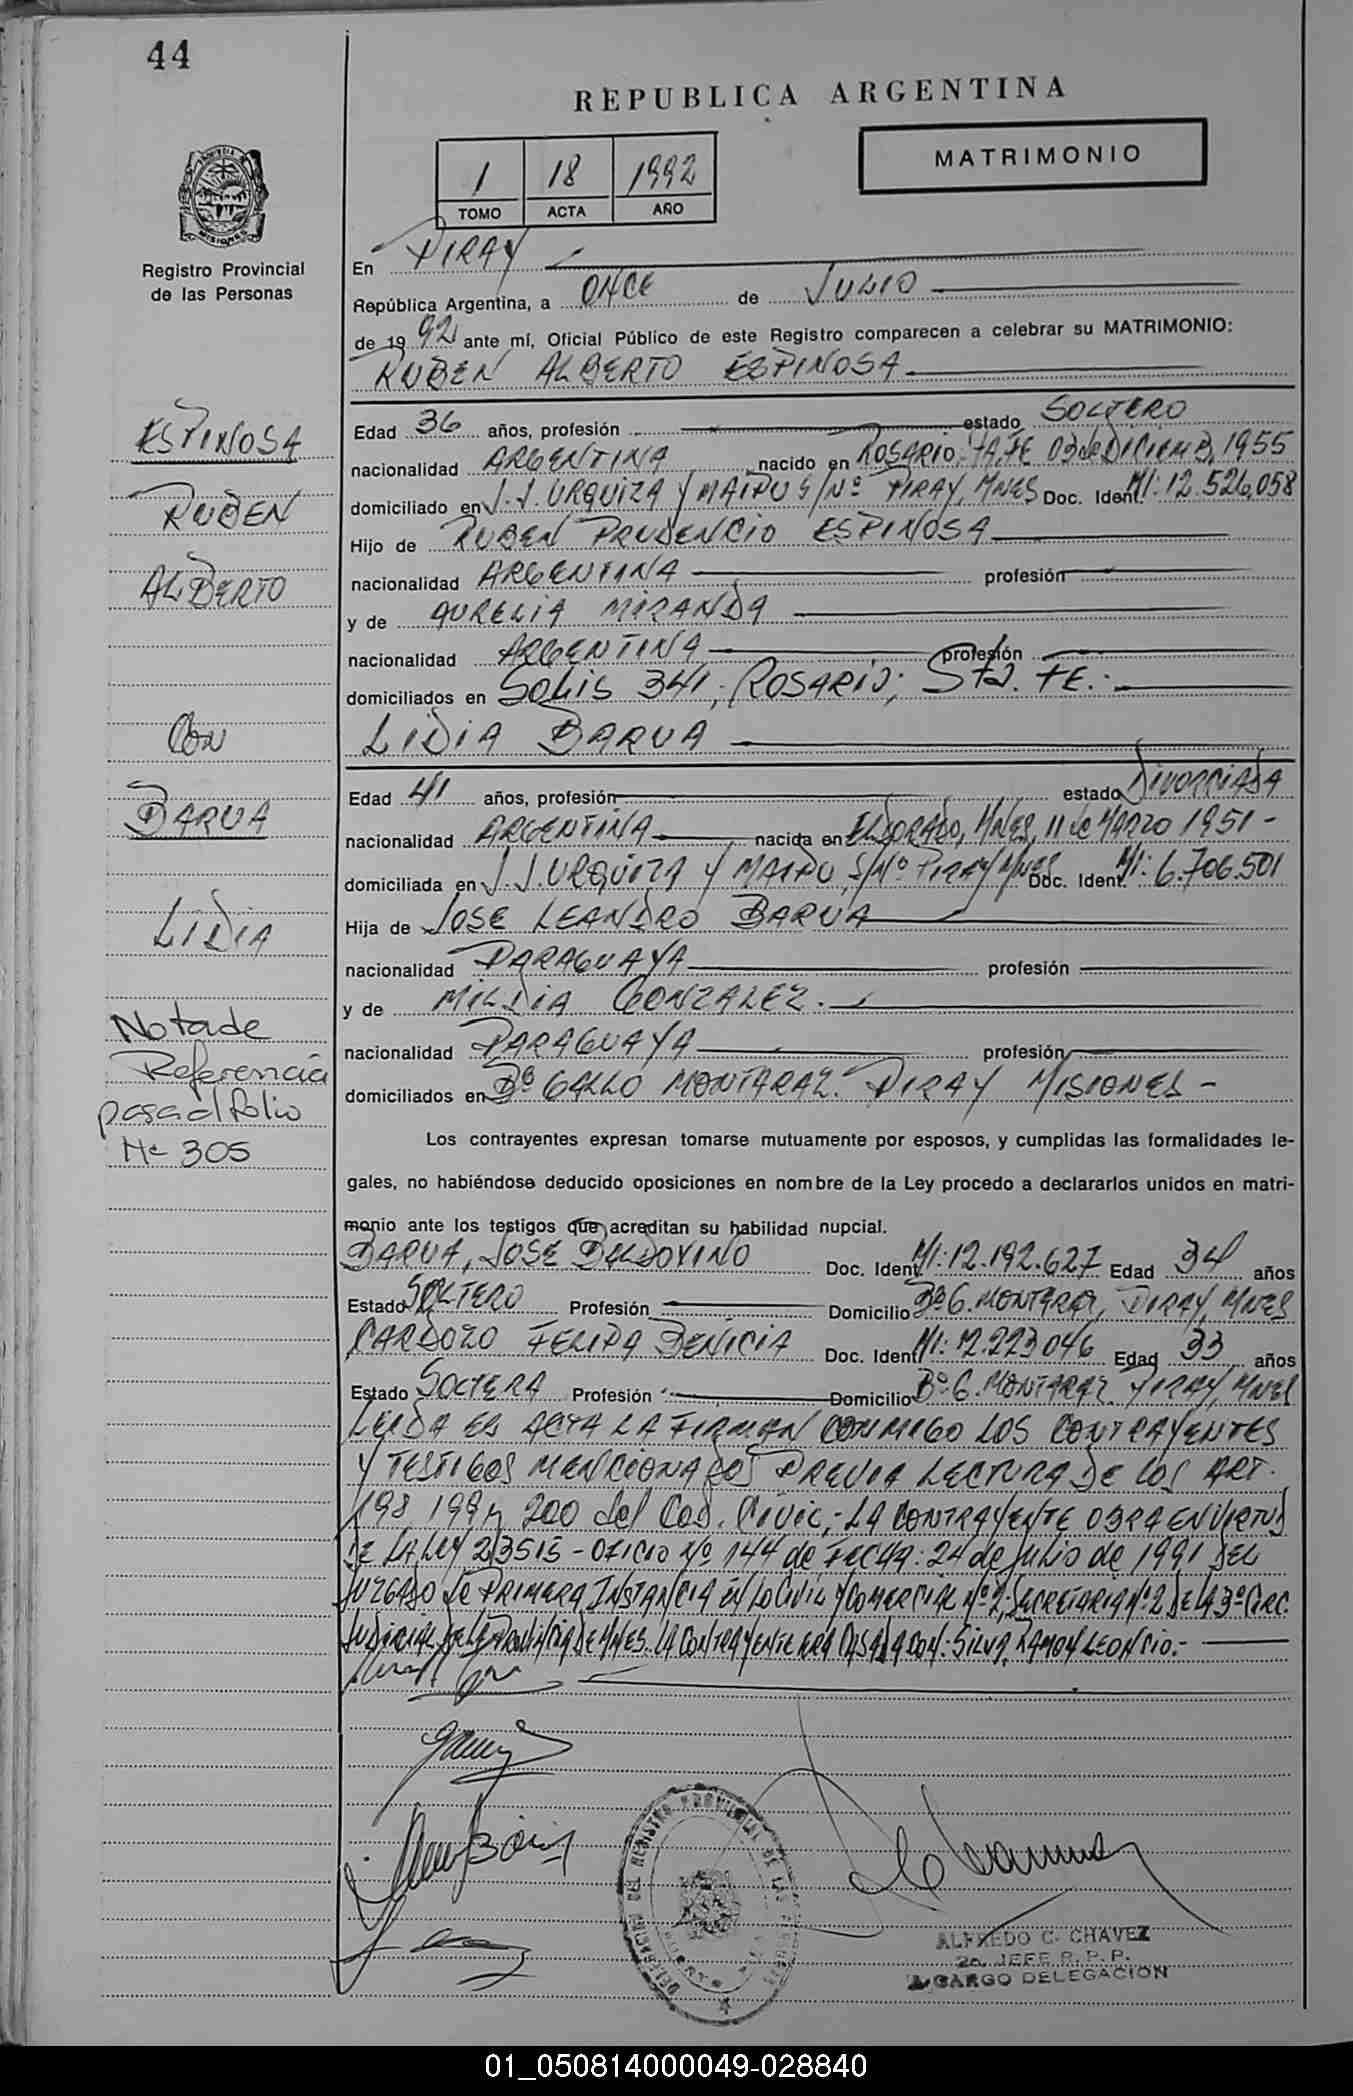 44
REPUBLICA ARGENTINA
MATRIMONIO
1 18 1992
TOMO ACTA AÑO
Registro Provincial
de las Personas
En PIRAY
República Argentina, a ONCE de JULIO
de 1992 ante mí, Oficial Público de este Registro comparecen a celebrar su MATRIMONIO:
RUBEN ALBERTO ESPINOSA
Edad 36 años, profesión estado SOLTERO
nacionalidad ARGENTINA nacido en ROSARIO, TA, FE 03 de DICIEMB, 1955
domiciliado en J.J. URQUIZA Y MAIPU S/Nº PIRAY, MNES Doc. Ident. MI: 12.526.058
Hijo de RUBEN PRUDENCIO ESPINOSA
nacionalidad ARGENTINA profesión
y de AURELIA MIRANDA
nacionalidad ARGENTINA profesión
domiciliados en SOLIS 341, ROSARIO; Sta. FE.-
LIDIA BARUA
Edad 41 años, profesión estado DIVORCIADA
nacionalidad ARGENTINA nacida en ELDORADO, MNES, 11 de MARZO 1951-
domiciliada en J.J. URQUIZA Y MAIPU S/Nº PIRAY MNES Doc. Ident. MI: 6.706.501
Hija de JOSE LEANDRO BARUA
nacionalidad PARAGUAYA profesión
y de MILDIA GONZALEZ.-
nacionalidad PARAGUAYA profesión
domiciliados en Bº GALLO MONTARAZ. PIRAY MISIONES -
ESPINOSA
RUBEN
ALBERTO
Con
BARUA
LIDIA
Nota de
Referencia
pasa al folio
Nº 305
Los contrayentes expresan tomarse mutuamente por esposos, y cumplidas las formalidades le-
gales, no habiéndose deducido oposiciones en nombre de la Ley procedo a declararlos unidos en matri-
monio ante los testigos que acreditan su habilidad nupcial.
BARUA, JOSE BALDOVINO Doc. Ident. MI: 12.192.627 Edad 34 años
Estado SOLTERO Profesión Domicilio Bº G. MONTARAZ, PIRAY, MNES
CARDOZO FELIPA BENICIA Doc. Ident. MI: 12.223046 Edad 33 años
Estado SOLTERA Profesión Domicilio Bº G. MONTARAZ. PIRAY, MNES
LEIDA EL ACTA LA FIRMAN CONMIGO LOS CONTRAYENTES
Y TESTIGOS MENCIONADOS PREVIA LECTURA DE LOS ART.
198 199 y 200 del Cod. Civil,- LA CONTRAYENTE OBRA EN VIRTUD
DE LA LEY 23515 - OFICIO Nº 144 de FECHA: 24 de Julio de 1991 DEL
JUZGADO de PRIMERA INSTANCIA EN LO CIVIL Y COMERCIAL Nº 2, SECRETARIA Nº 2 DE LA 3º CIRC.
JUDICIAL DE LA PROVINCIA DE MNES. LA CONTRAYENTE ERA CASADA CON: SILVA, RAMON LEONCIO.-
ALFREDO C. CHAVEZ
2o. JEFE R. P. P.
A CARGO DELEGACION
01_050814000049-028840